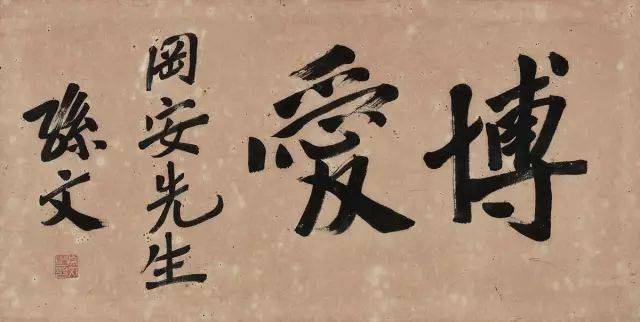 博愛
岡安先生
孫文